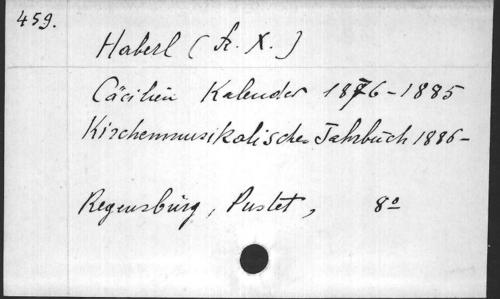 459.
Haberl (Fr. X.)
Cäcilien Kalender 1876-1885
Kirchenmusikalisches Jahrbuch 1886-
Regensburg, Pustet, 8º